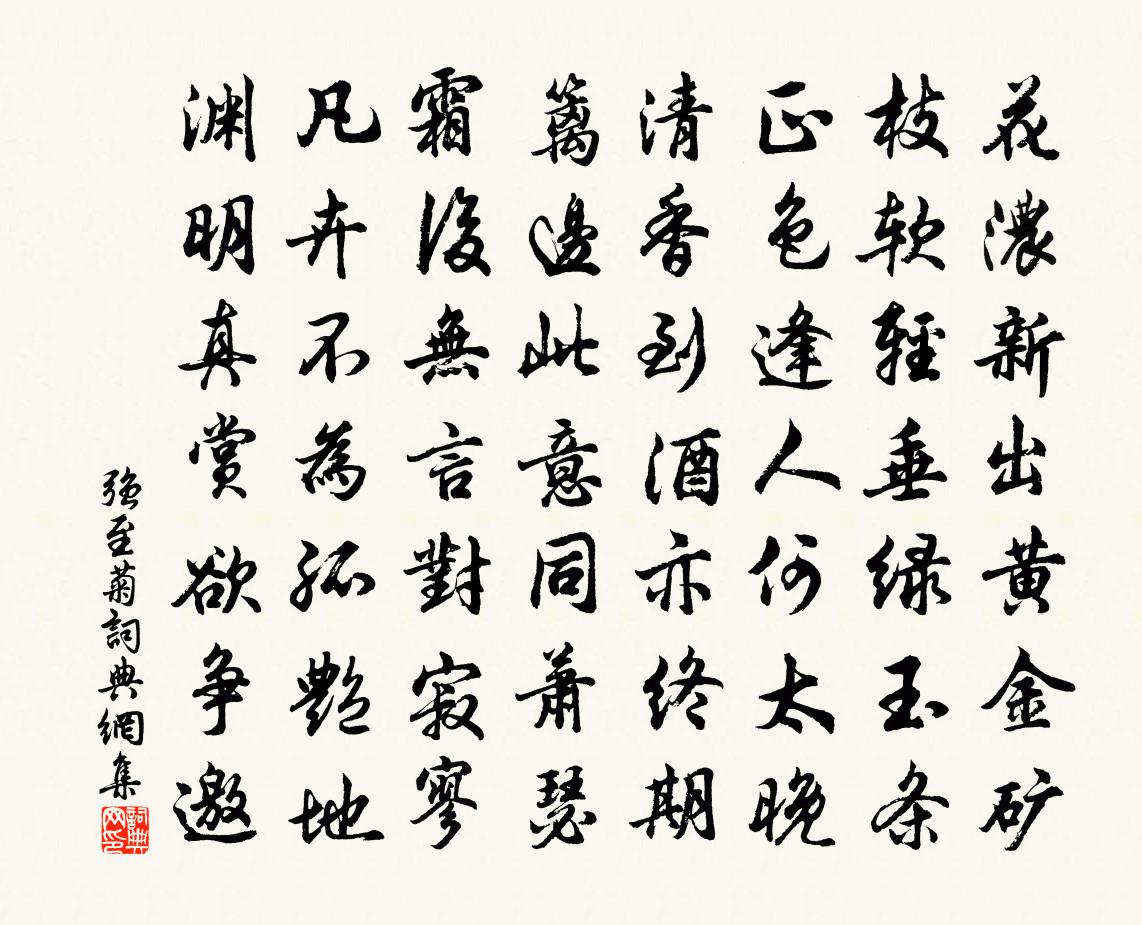 花濃新出黄金矿
枝软輕垂绿玉条
正色逢人何太晚
清香到酒亦终期
籬邊此意同萧瑟
霜後無言對寂寥
凡卉不為孤艷地
渊明真赏欲争邀
强至菊詞典網集
詞典
网印